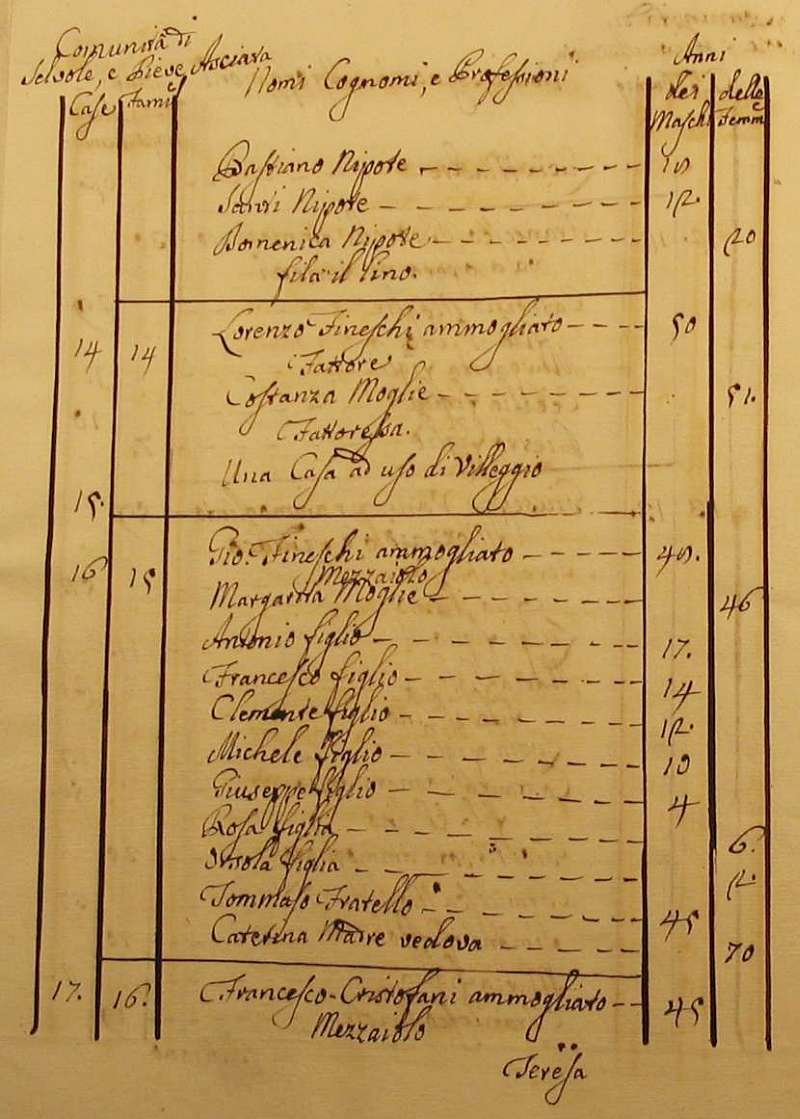 Comunità di
Selvole, e Pieve Asciata
Nomi Cognomi, e Professioni
Anni
Case Fami.e
dei Maschi
delle Femm.e
Bastiano Nipote
Santi Nipote 12.
Domenica Nipote 20
fila il lino.
14 14 Lorenzo Fineschi ammogliato 50
Fattore
Costanza Moglie 51.
Fattoressa.
15. Una Casa ad uso di Villeggio
16 15 Gio: Fineschi ammogliato
Mezzaiolo
Margarita Moglie 46
Antonio figlio 17.
Francesco figlio 14
Clemente figlio 12.
Michele figlio 10
Giuseppe figlio 4
Rosa figlia 6.
Orsola figlia 2.
Tommaso Fratello 45
Caterina Madre vedova 70
17. 16. Francesco Cristofani ammogliato 45
Mezzaiolo
Teresa